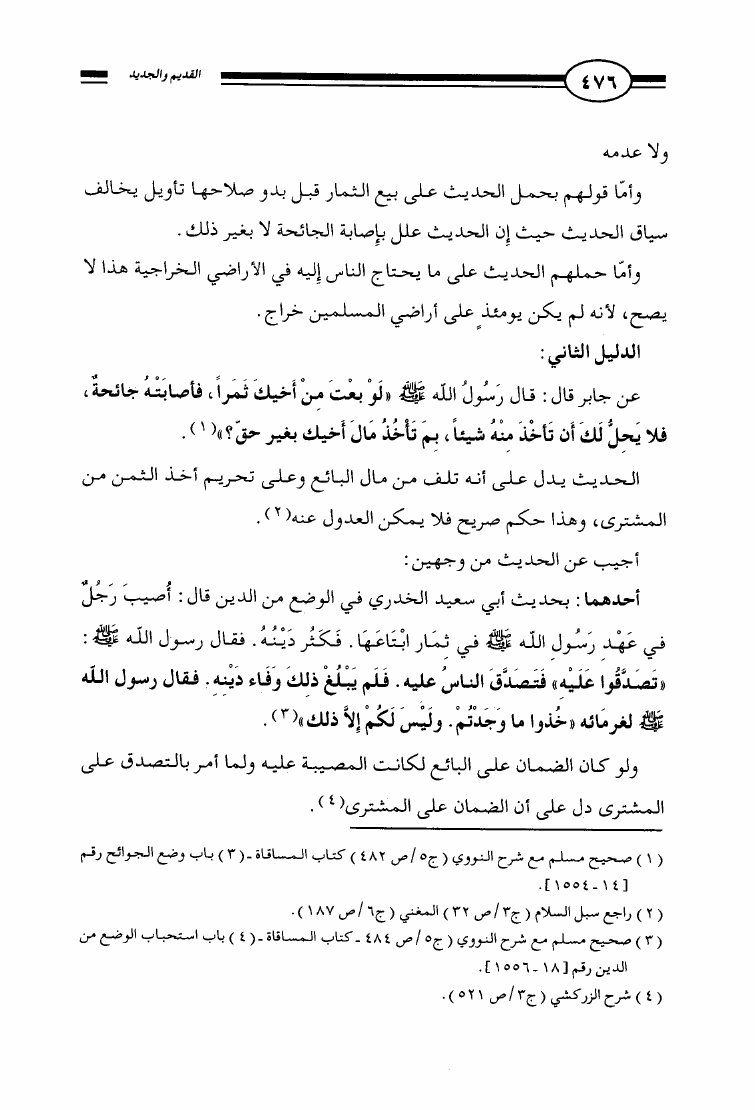 ٤٧٦ القديم والجديد
ولا عدمه
وأمّا قولهم بحمل الحديث على بيع الثمار قبل بدو صلاحها تأويل يخالف
سياق الحديث حيث إن الحديث علل بإصابة الجائحة لا بغير ذلك.
وأمّا حملهم الحديث على ما يحتاج الناس إليه في الأراضي الخراجية هذا لا
يصح، لأنه لم يكن يومئذٍ على أراضي المسلمين خراج.
الدليل الثاني:
عن جابر قال: قال رَسُولُ الله ﷺ «لَوْ بعْتَ منْ أخيكَ ثَمَراً، فأصابَتْهُ جائحةٌ،
فلا يَحلُّ لَكَ أن تَأخْذَ منْهُ شيئاً، بمَ تَأْخُذُ مَالَ أخيك بغير حقّ؟»(١).
الحديث يدل على أنه تلف من مال البائع وعلى تحريم أخذ الثمن من
المشترى، وهذا حكم صريح فلا يمكن العدول عنه(٢).
أجيب عن الحديث من وجهين:
أحدهما: بحديث أبي سعيد الخدري في الوضع من الدين قال: أُصيبَ رَجُلٌ
في عَهْد رَسُول الله ﷺ في ثمَار ابْتَاعَهَا. فَكَثُر دَيْنُهُ. فقال رسول الله ﷺ:
«تَصَدَّقُوا عَلَيْه» فَتَصَدَّقَ الناسُ عليه. فَلَم يَبْلُغْ ذلكَ وَفَاء دَيْنه. فقال رسول الله
ﷺ لغرمائه «خُذوا ما وَجَدْتُمْ. ولَيْسَ لَكُمْ إلاَّ ذلك»(٣).
ولو كان الضمان على البائع لكانت المصيبة عليه ولما أمر بالتصدق على
المشترى دل على أن الضمان على المشترى(٤).
(١) صحيح مسلم مع شرح النووي (ج٥/ص ٤٨٢) كتاب المساقاة ـ(٣) باب وضع الجوائح رقم
[١٤ـ١٥٥٤].
(٢) راجع سبل السلام (ج٣/ص ٣٢) المغني (ج٦/ص ١٨٧).
(٣) صحيح مسلم مع شرح النووي (ج٥/ص ٤٨٤ ـ كتاب المساقاة ـ(٤) باب استحباب الوضع من
الدين رقم [١٨ـ١٥٥٦].
(٤) شرح الزركشي (ج٣/ص ٥٢١).